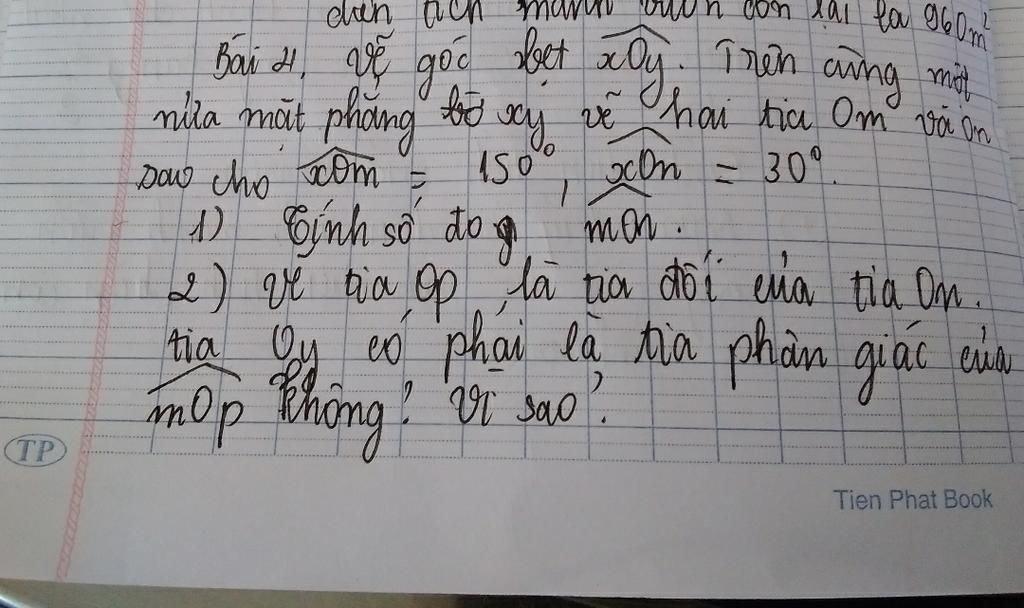 diện tích mảnh vườn còn lại là 960m²
Bài 4, Vẽ góc bẹt xOy. Trên cùng một
nửa mặt phẳng bờ xy vẽ hai tia Om và On
sao cho xOm = 150°, xOn = 30°.
1) Tính số đo mOn.
2) Vẽ tia Op là tia đối của tia On.
tia Oy có phải là tia phân giác của
mOp không? Vì sao?
TP
Tien Phat Book